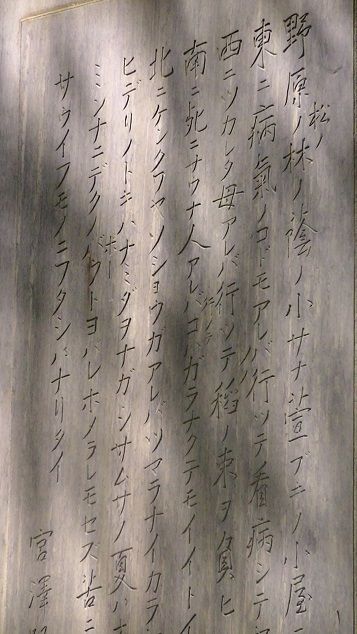 野原ノ松ノ林ノ蔭ノ小サナ萱ブキノ小屋
東ニ病氣ノコドモアレバ行ッテ看病シテヤ
西ニツカレタ母アレバ行ッテ稲ノ束ヲ負ヒ
南ニ死ニサウナ人アレバ行ッテコハガラナクテモイイトイ
北ニケンクヮヤソショウガアレバツマラナイカラ
ヒデリノトキハナミダヲナガシサムサノ夏ハオ
ミンナニデクノボートヨバレホメラレモセズ苦ニ
サウイフモノニワタシハナリタイ
宮澤